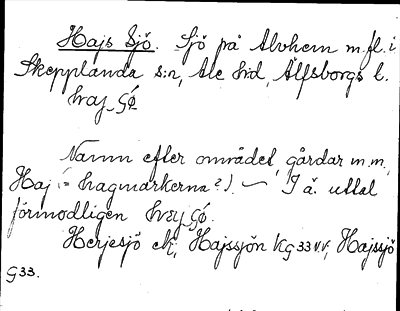 Hajs Sjö. Sjö på Alvhem m.fl. i
Skepplanda s:n, Ale hd, Älfsborgs l.
Namn efter området, gårdar m.m.
Haj (= hagmarkerna?). ~ I ä. uttal
förmodligen
Herjesjö ek, Hajssjön KG33 v.v., Hajssjö
G33.